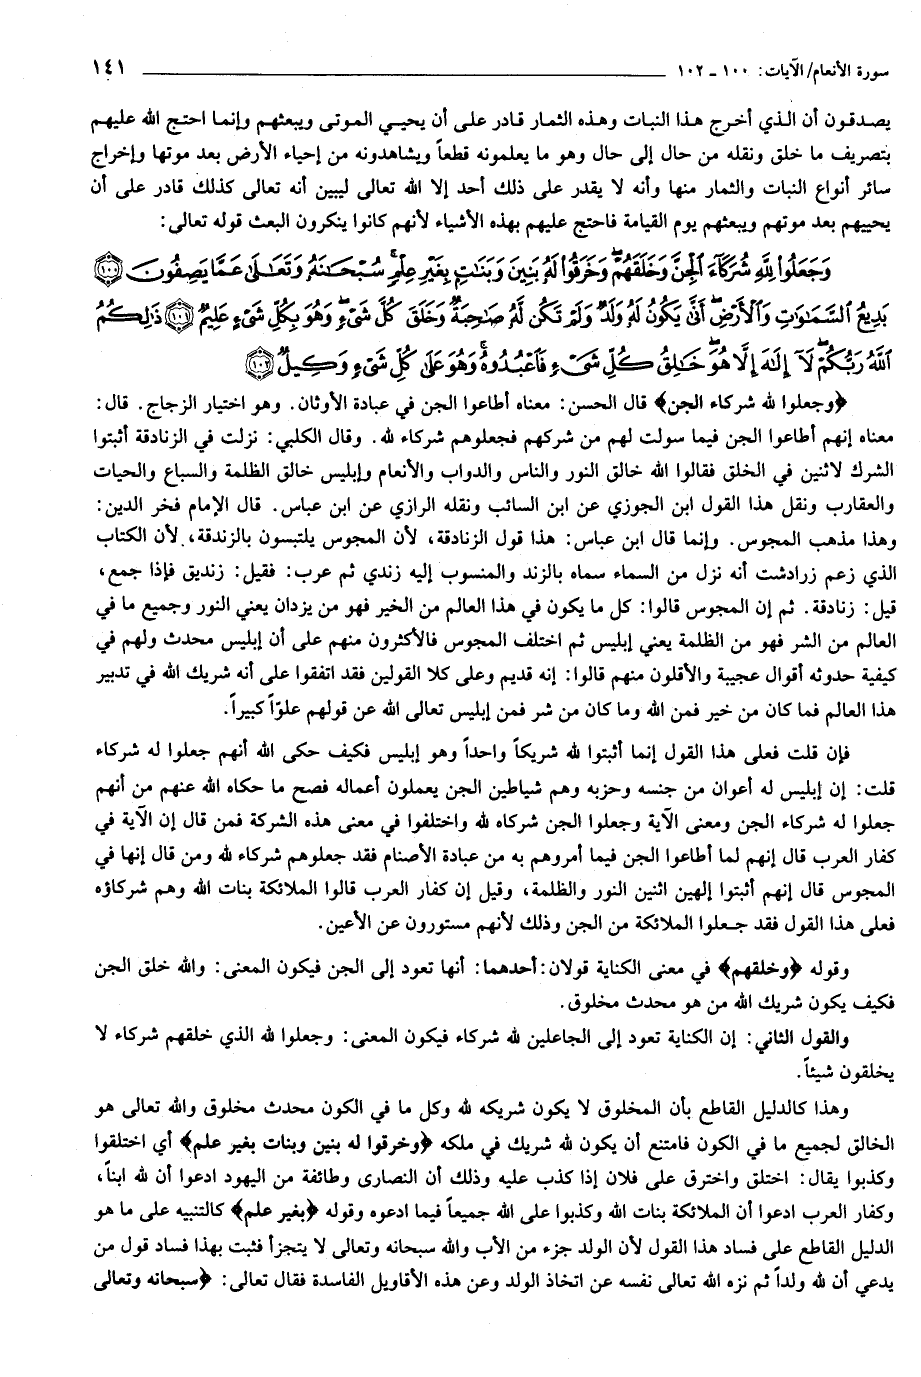 سورة الأنعام/ الآيات: ١٠٠ - ١٠٢ ١٤١
يصدقون أن الذي أخرج هذا النبات وهذه الثمار قادر على أن يحيـي الموتى ويبعثهم وإنما احتج الله عليهم
بتصريف ما خلق ونقله من حال إلى حال وهو ما يعلمونه قطعاً ويشاهدونه من إحياء الأرض بعد موتها وإخراج
سائر أنواع النبات والثمار منها وأنه لا يقدر على ذلك أحد إلا الله تعالى ليبين أنه تعالى كذلك قادر على أن
يحييهم بعد موتهم ويبعثهم يوم القيامة فاحتج عليهم بهذه الأشياء لأنهم كانوا ينكرون البعث قوله تعالى:
وَجَعَلُوا۟ لِلَّهِ شُرَكَآءَ ٱلْجِنَّ وَخَلَقَهُمْ ۖ وَخَرَقُوا۟ لَهُۥ بَنِينَ وَبَنَٰتٍۭ بِغَيْرِ عِلْمٍ ۚ سُبْحَٰنَهُۥ وَتَعَٰلَىٰ عَمَّا يَصِفُونَ ﴿١٠٠﴾
بَدِيعُ ٱلسَّمَٰوَٰتِ وَٱلْأَرْضِ ۖ أَنَّىٰ يَكُونُ لَهُۥ وَلَدٌ وَلَمْ تَكُن لَّهُۥ صَٰحِبَةٌ ۖ وَخَلَقَ كُلَّ شَىْءٍ ۖ وَهُوَ بِكُلِّ شَىْءٍ عَلِيمٌ ﴿١٠١﴾ ذَٰلِكُمُ
ٱللَّهُ رَبُّكُمْ ۖ لَآ إِلَٰهَ إِلَّا هُوَ ۖ خَٰلِقُ كُلِّ شَىْءٍ فَٱعْبُدُوهُ ۚ وَهُوَ عَلَىٰ كُلِّ شَىْءٍ وَكِيلٌ ﴿١٠٢﴾
﴿وجعلوا لله شركاء الجن﴾ قال الحسن: معناه أطاعوا الجن في عبادة الأوثان. وهو اختيار الزجاج. قال:
معناه إنهم أطاعوا الجن فيما سولت لهم من شركهم فجعلوهم شركاء لله. وقال الكلبي: نزلت في الزنادقة أثبتوا
الشرك لاثنين في الخلق فقالوا الله خالق النور والناس والدواب والأنعام وإبليس خالق الظلمة والسباع والحيات
والعقارب ونقل هذا القول ابن الجوزي عن ابن السائب ونقله الرازي عن ابن عباس. قال الإمام فخر الدين:
وهذا مذهب المجوس. وإنما قال ابن عباس: هذا قول الزنادقة، لأن المجوس يلتبسون بالزندقة، لأن الكتاب
الذي زعم زرادشت أنه نزل من السماء سماه بالزند والمنسوب إليه زندي ثم عرب: فقيل: زنديق فإذا جمع،
قيل: زنادقة. ثم إن المجوس قالوا: كل ما يكون في هذا العالم من الخير فهو من يزدان يعني النور وجميع ما في
العالم من الشر فهو من الظلمة يعني إبليس ثم اختلف المجوس فالأكثرون منهم على أن إبليس محدث ولهم في
كيفية حدوثه أقوال عجيبة والأقلون منهم قالوا: إنه قديم وعلى كلا القولين فقد اتفقوا على أنه شريك الله في تدبير
هذا العالم فما كان من خير فمن الله وما كان من شر فمن إبليس تعالى الله عن قولهم علوّاً كبيراً.
فإن قلت فعلى هذا القول إنما أثبتوا لله شريكاً واحداً وهو إبليس فكيف حكى الله أنهم جعلوا له شركاء
قلت: إن إبليس له أعوان من جنسه وحزبه وهم شياطين الجن يعملون أعماله فصح ما حكاه الله عنهم من أنهم
جعلوا له شركاء الجن ومعنى الآية وجعلوا الجن شركاه لله واختلفوا في معنى هذه الشركة فمن قال إن الآية في
كفار العرب قال إنهم لما أطاعوا الجن فيما أمروهم به من عبادة الأصنام فقد جعلوهم شركاء لله ومن قال إنها في
المجوس قال إنهم أثبتوا إلهين اثنين النور والظلمة، وقيل إن كفار العرب قالوا الملائكة بنات الله وهم شركاؤه
فعلى هذا القول فقد جـعلوا الملائكة من الجن وذلك لأنهم مستورون عن الأعين.
وقوله ﴿وخلقهم﴾ في معنى الكناية قولان: أحدهما: أنها تعود إلى الجن فيكون المعنى: والله خلق الجن
فكيف يكون شريك الله من هو محدث مخلوق.
والقول الثاني: إن الكناية تعود إلى الجاعلين لله شركاء فيكون المعنى: وجعلوا لله الذي خلقهم شركاء لا
يخلقون شيئاً.
وهذا كالدليل القاطع بأن المخلوق لا يكون شريكه لله وكل ما في الكون محدث مخلوق والله تعالى هو
الخالق لجميع ما في الكون فامتنع أن يكون لله شريك في ملكه ﴿وخرقوا له بنين وبنات بغير علم﴾ أي اختلقوا
وكذبوا يقال: اختلق واخترق على فلان إذا كذب عليه وذلك أن النصارى وطائفة من اليهود ادعوا أن لله ابناً،
وكفار العرب ادعوا أن الملائكة بنات الله وكذبوا على الله جميعاً فيما ادعوه وقوله ﴿بغير علم﴾ كالتنبيه على ما هو
الدليل القاطع على فساد هذا القول لأن الولد جزء من الأب والله سبحانه وتعالى لا يتجزأ فثبت بهذا فساد قول من
يدعي أن لله ولداً ثم نزه الله تعالى نفسه عن اتخاذ الولد وعن هذه الأقاويل الفاسدة فقال تعالى: ﴿سبحانه وتعالى